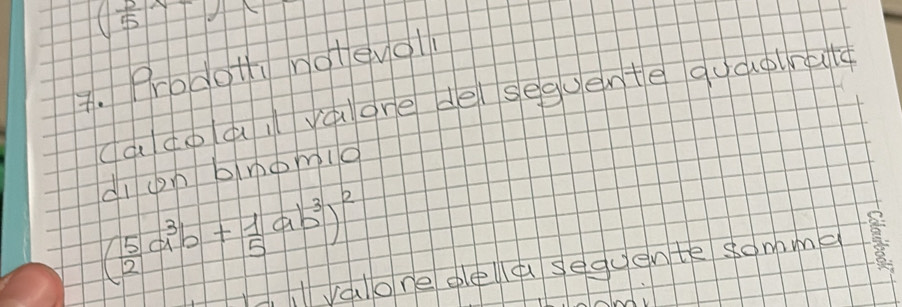 7. Prodotti notevoli
Calcola il valore del seguente quadrato
di un binomio
(5/2 a³b + 1/5 ab³)²
il valore della seguente somma